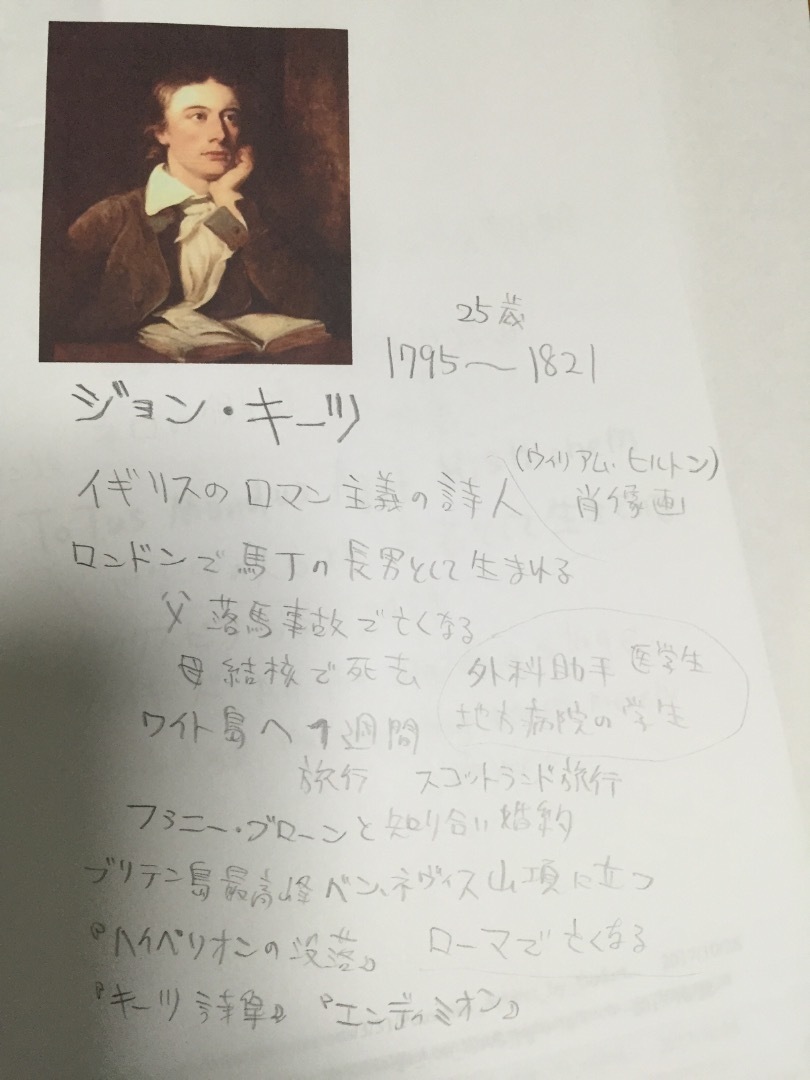 25歳
1795〜1821
ジョン・キーツ
(ウィリアム・ヒルトン)
イギリスのロマン主義の詩人 肖像画
ロンドンで馬丁の長男として生まれる
父 落馬事故で亡くなる
母 結核で死去 外科助手 医学生
地方病院の学生
ワイト島へ1週間
旅行 スコットランド旅行
ファニー・ブローンと知り合い婚約
ブリテン島最高峰ベン、ネヴィス山頂に立つ
『ハイペリオンの没落』 ローマで亡くなる
『キーツ詩集』 『エンディミオン』